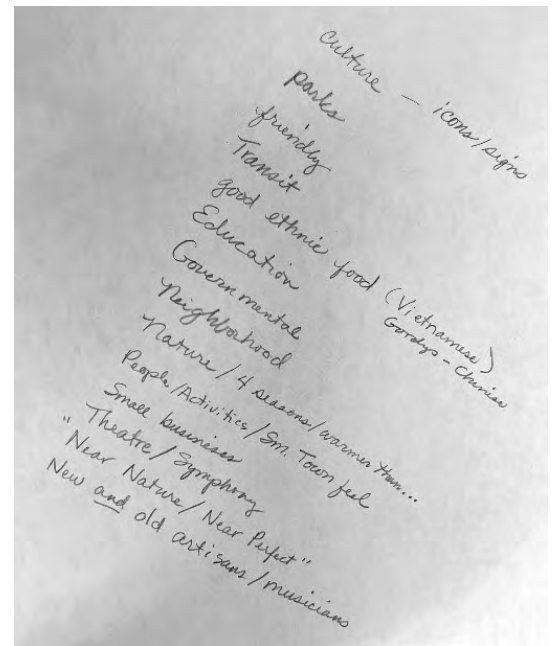 Culture — icons/signs
parks
friendly
Transit
good ethnic food (Vietnamese)
Gordys - Chinese
Education
Governmental
Neighborhood
Nature / 4 seasons / warmer than...
People/Activities / Sm. Town feel
Small businises
Theatre / Symphony
"Near Nature / Near Perfect"
New and old artisans / musicians